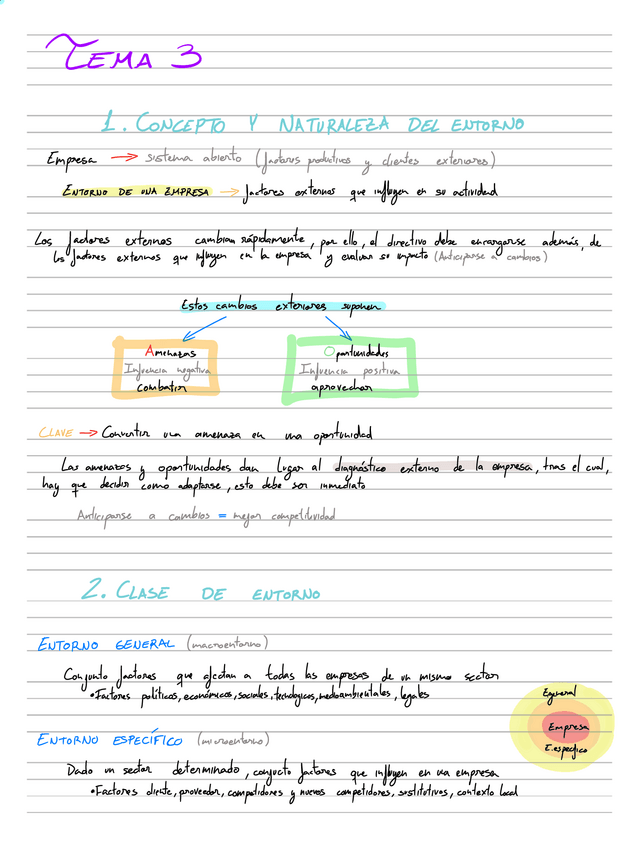 TEMA 3
1. CONCEPTO Y NATURALEZA DEL ENTORNO
Empresa → sistema abierto (factores productivos y clientes exteriores)
ENTORNO DE UNA EMPRESA → factores externos que influyen en su actividad
Los factores externos cambian rápidamente, por ello, el directivo debe encargarse además, de
los factores externos que influyen en la empresa y evaluar su impacto (Anticiparse a cambios)
Estos cambios exteriores suponen
Amenazas
Influencia negativa
combatir
Oportunidades
Influencia positiva
aprovechar
CLAVE → Convertir una amenaza en una oportunidad
Las amenazas y oportunidades dan lugar al diagnóstico externo de la empresa, tras el cual,
hay que decidir como adaptarse, esto debe ser inmediato
Anticiparse a cambios = mejor competitividad
2. CLASE DE ENTORNO
ENTORNO GENERAL (macroentorno)
Conjunto factores que afectan a todas las empresas de un mismo sector
• Factores políticos, económicos, sociales, tecnologicos, medioambientales, legales
E.general
Empresa
E.especfico
ENTORNO ESPECÍFICO (microentorno)
Dado un sector determinado, conjucto factores que influyen en una empresa
• Factores cliente, proveedor, competidores y nuevos competidores, sustitutivos, contexto local